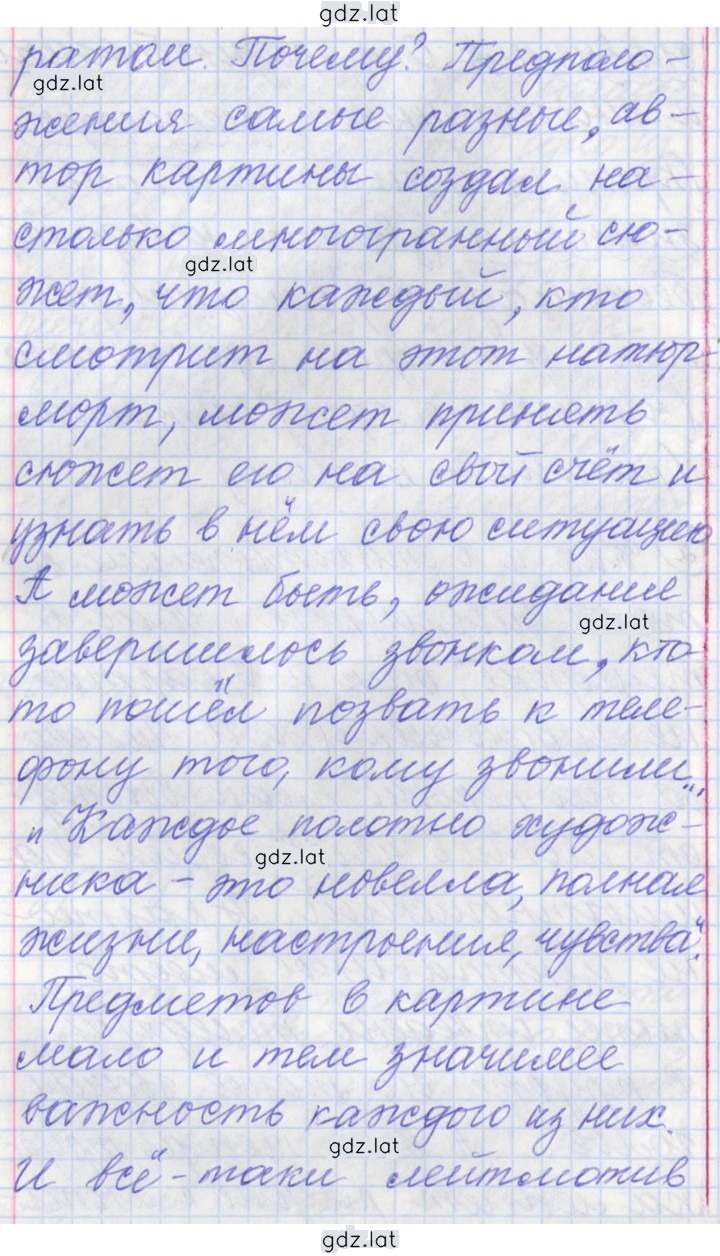 gdz.lat
ратом. Почему? Предполо-
gdz.lat
жения самые разные, ав-
тор картины создал на-
столько многогранный сю-
gdz.lat
жет, что каждый, кто
смотрит на этот натюр-
морт, может принять
сюжет его на свой счёт и
узнать в нём свою ситуацию
А может быть, ожидание
gdz.lat
завершилось звонком, кто-
то пошёл позвать к теле-
фону того, кому звонили"
"Каждое полотно худож-
gdz.lat
ника - это новелла, полная
жизни, настроения, чувства".
Предметов в картине
мало и тем значимее
важность каждого из них.
gdz.lat
И всё-таки лейтмотив
gdz.lat